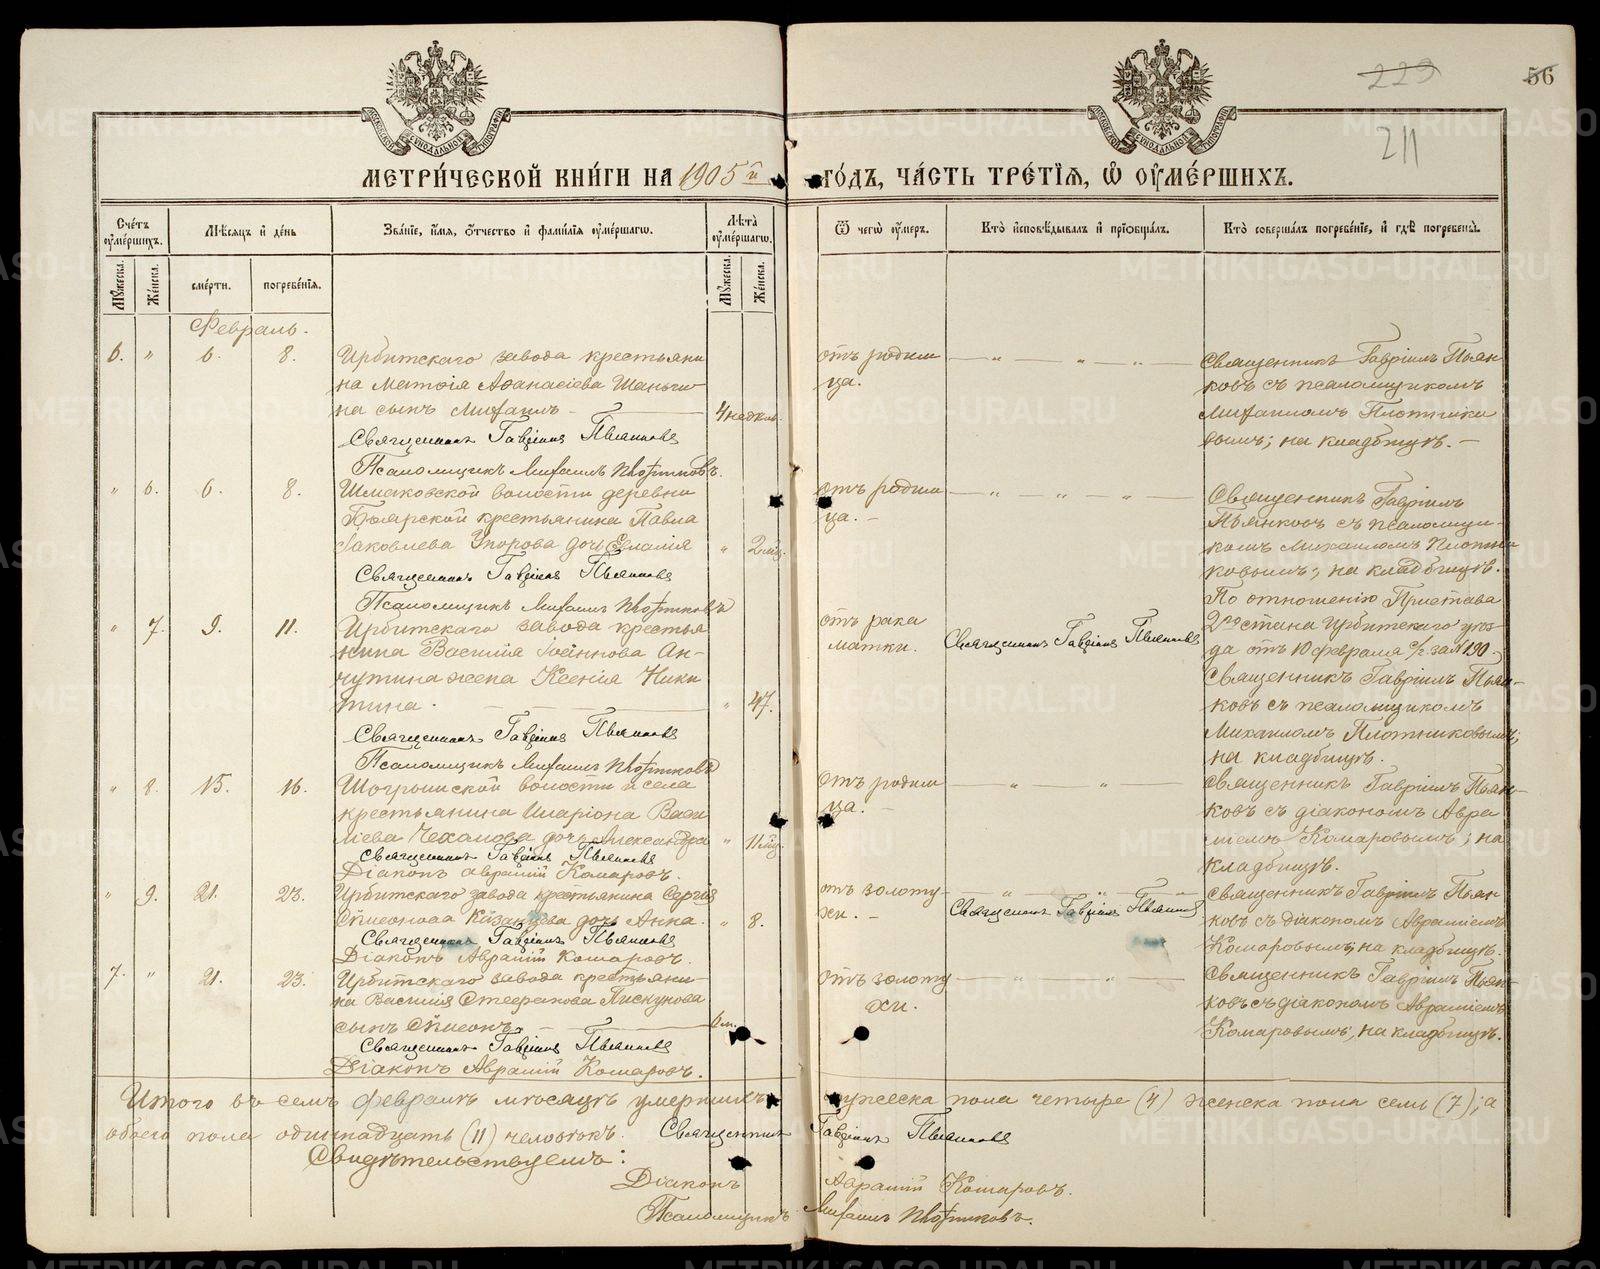 229
56
211
МОСКОВСКОЙ СѴНОДАЛЬНОЙ ТИПОГРАФІИ
МОСКОВСКОЙ СѴНОДАЛЬНОЙ ТИПОГРАФІИ
МЕТРИ́ЧЕСКОЙ КНИ́ГИ НА 1905й ГО́ДЪ, ЧА́СТЬ ТРЕ́ТІЯ, Ѡ ОУМЕ́РШИХЪ.
Сче́тъ оуме́ршихъ.
Мѣ́сяцъ и де́нь
Зва́ніе, и́мя, о́тчество и фами́лія оуме́ршагѡ.
Лѣ́та оуме́ршагѡ.
Ѿ чегѡ̀ оу́меръ.
Кто̀ и҆сповѣ́дывалъ и прїѡбща́лъ.
Кто̀ соверша́лъ погребе́ніе, и гдѣ̀ погребены̀.
Мꙋ́жеска.
Же́нска.
сме́рти.
погребе́нія.
Мꙋ́жеска.
Же́нска.
Февраль.
6. " 6. 8. Ирбитскаго завода крестьяни
на Матѳія Аѳанасіева
на сынъ Михаилъ — 4 недѣль.
Священникъ Гавріилъ Пьянковъ
Псаломщикъ Михаилъ Плотниковъ.
отъ родим
ца.
Священникъ Гавріилъ Пьян
ковъ съ псаломщикомъ
Михаиломъ Плотнико
вымъ; на кладбищѣ. —
" 6. 6. 8. Шмаковской волости деревни
Боярской крестьянина Павла
Іаковлева Упорова дочь " 2 мѣс.
Священникъ Гавріилъ Пьянковъ
Псаломщикъ Михаилъ Плотниковъ
отъ родим
ца. —
Священникъ Гавріилъ
Пьянковъ съ псаломщи-
комъ Михаиломъ Плотни
ковымъ; на кладбищѣ.
" 7. 9. 11. Ирбитскаго завода крестья
нина Василія Іоаннова Ан-
чутина жена Ксенія Ники
тина. " 47.
Священникъ Гавріилъ Пьянковъ
Псаломщикъ Михаилъ Плотниковъ
отъ рака
матки.
Священникъ Гавріилъ Пьянковъ
По отношенію Пристава
2го стана Ирбитскаго уѣз
да отъ 10 февраля с/г за № 190 —
Священникъ Гавріилъ Пьян-
ковъ съ псаломщикомъ
Михаиломъ Плотниковымъ;
на кладбищѣ.
" 8. 15. 16. Шогрышской волости и села
крестьянина Иларіона Васи
ліева дочь Александра " 11 мѣс.
Священникъ Гавріилъ Пьянковъ
Діаконъ Аврамій Комаровъ.
отъ родим
ца. —
Священникъ Гавріилъ Пьян-
ковъ съ діакономъ Авра
міемъ Комаровымъ; на
кладбищѣ.
" 9. 21. 23. Ирбитскаго завода крестьянина Сергія
Симеонова дочь Анна. " 8.
Священникъ Гавріилъ Пьянковъ
Діаконъ Аврамій Комаровъ.
отъ золоту-
хи. —
Священникъ Гавріилъ Пьянковъ
Священникъ Гавріилъ Пьян
ковъ съ діакономъ Авраміемъ
Комаровымъ; на кладбищѣ.
7. " 21. 23. Ирбитскаго завода крестьяни-
на Василія Стефанова Пискунова
сынъ Симеонъ. — 6 м.
Священникъ Гавріилъ Пьянковъ
Діаконъ Аврамій Комаровъ.
отъ золоту
хи.
Священникъ Гавріилъ Пьян-
ковъ съ діакономъ Авраміемъ
Комаровымъ; на кладбищѣ.
Итого въ семъ февралѣ мѣсяцѣ умершихъ мужеска пола четыре (4) женска пола семь (7); а
обоего пола одиннадцать (11) человѣкъ. Священникъ Гавріилъ Пьянковъ
Свидѣтельствуемъ:
Діаконъ Аврамій Комаровъ.
Псаломщикъ Михаилъ Плотниковъ.
METRIKI.GASO-URAL.RU